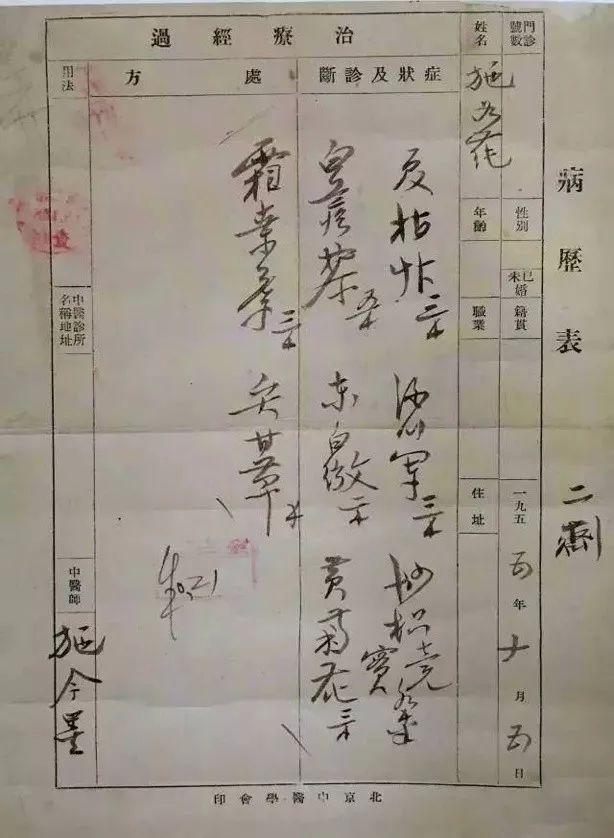 病歷表 二劑
門診號數 性別 已未婚 籍貫 一九五五年十月五日
姓名 施 花 年齡 職業 住址
治療經過
症狀及診斷
處方
用法
夏枯草三 軍三 炒枳壳實
白蒺藜五 東白薇二 黃菊花三
霜桑葉三 炙甘草
中醫診所名稱地址
中醫師 施今墨
北京中醫學會印